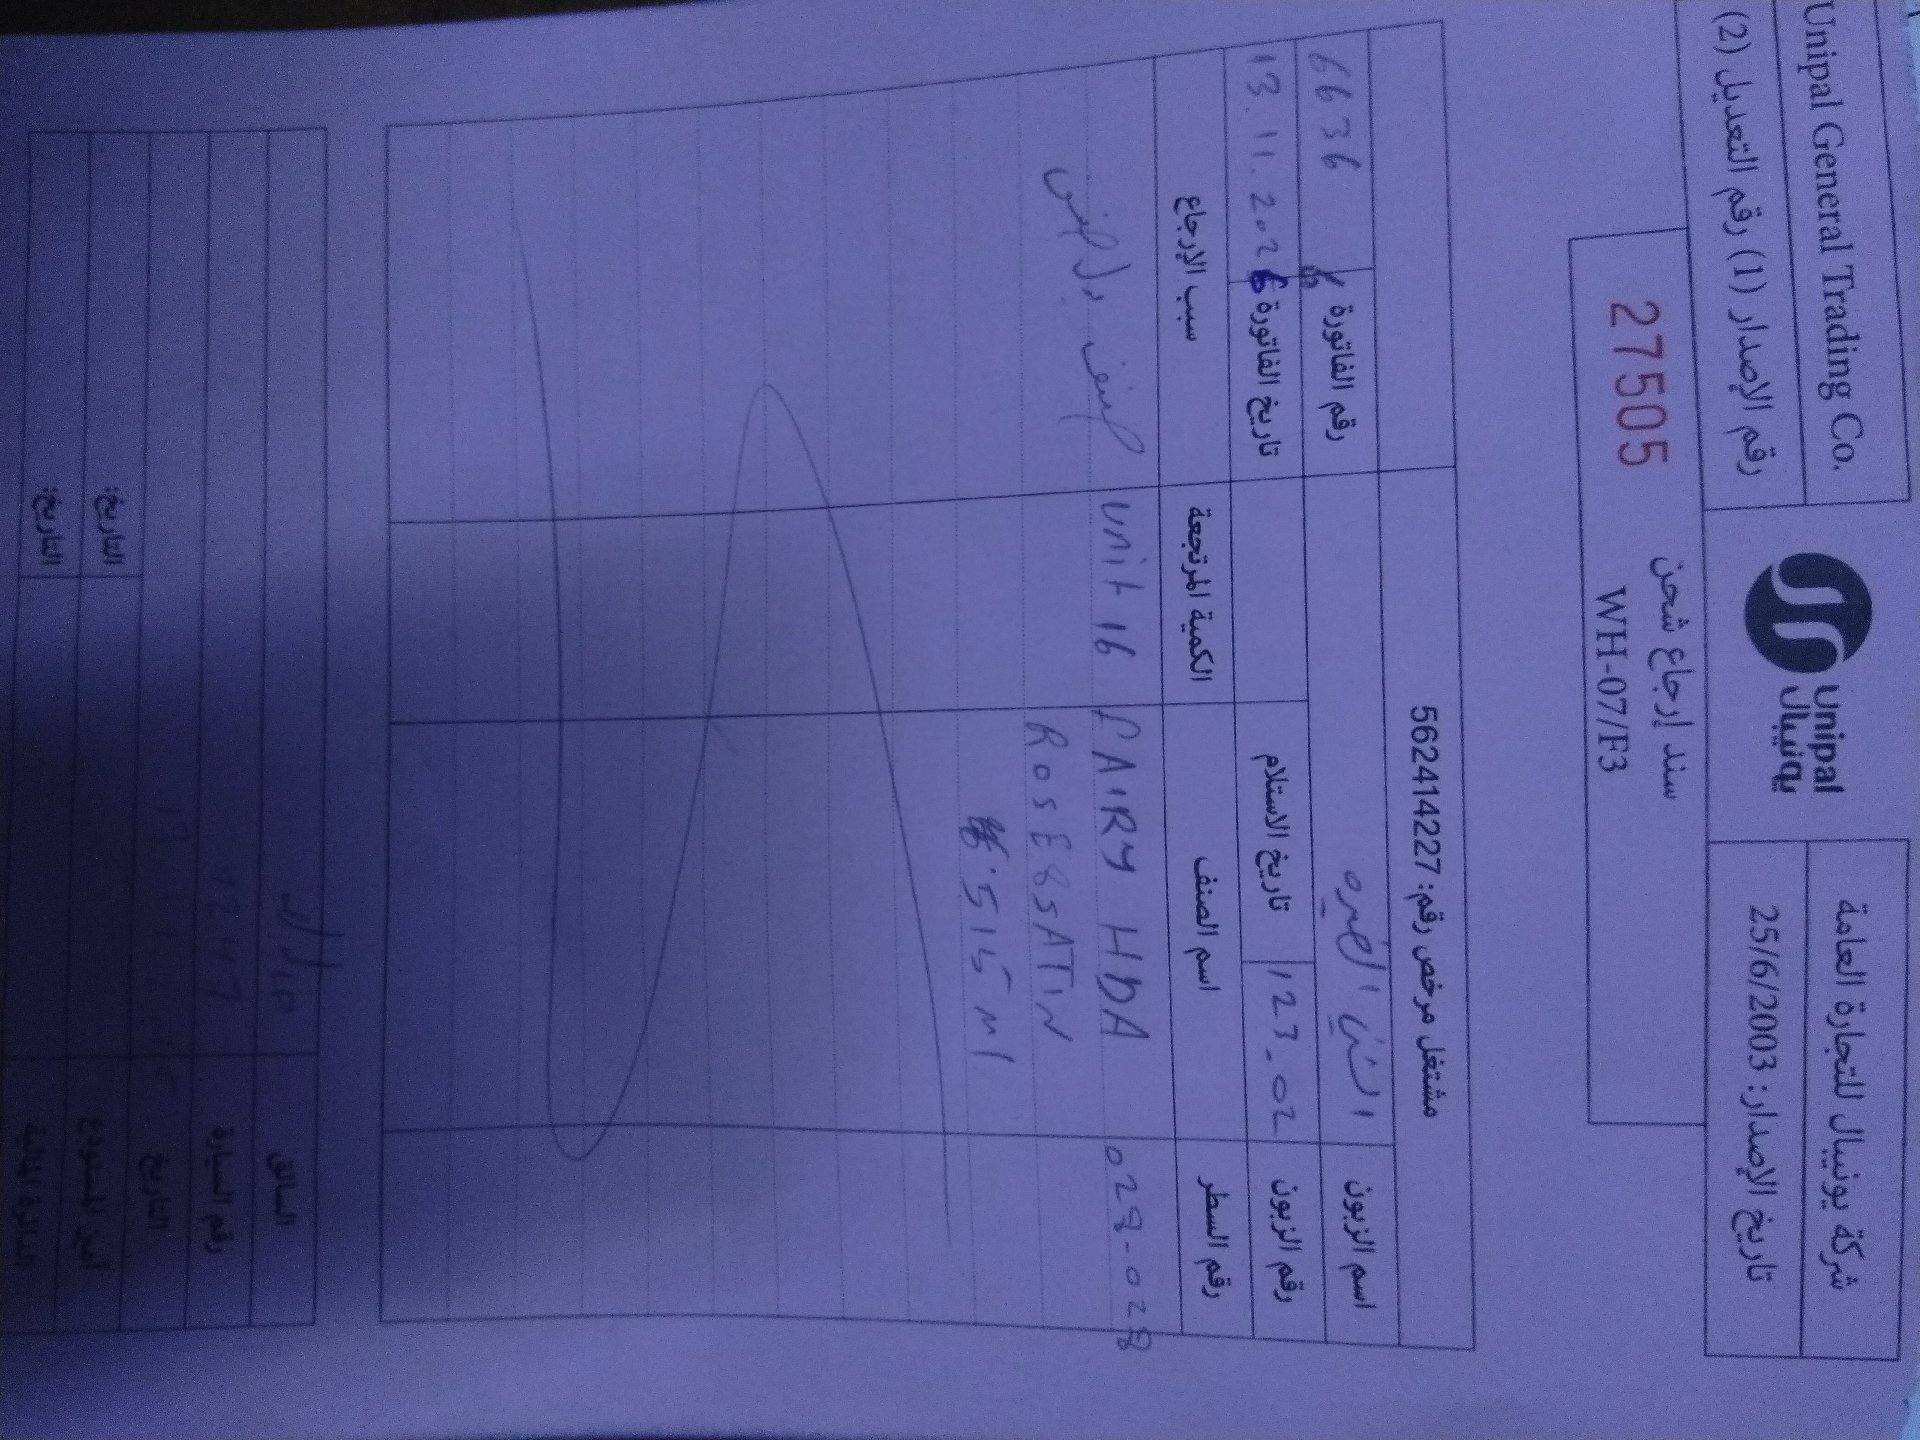 شركة يونيبال للتجارة العامة
Unipal General Trading Co.
Unipal
يونيبال
تاريخ الإصدار: 25/6/2003
رقم الإصدار (1) رقم التعديل (2)
سند إرجاع شحن
27505
WH-07/F3
مشتغل مرخص رقم: 562414227
اسم الزبون
رقم الفاتورة 6636
رقم الزبون 123-02 تاريخ الاستلام تاريخ الفاتورة 13.11.202
رقم السطر اسم الصنف الكمية المرتجعة سبب الإرجاع
028-028 FAIRY HDA unit 16
ROSE&SATIN
515 ml
السائق
رقم السيارة
التاريخ
أمين المستودع التاريخ:
الدائرة المالية التاريخ: